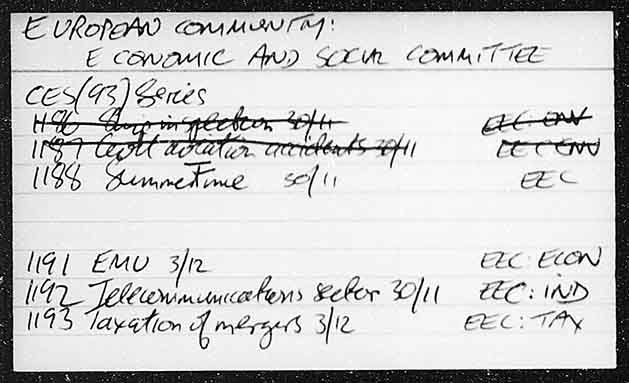 EUROPEAN COMMUNITY:
ECONOMIC AND SOCIAL COMMITTEE
CES(93) Series
1186 Ship inspection 30/11 EEC: ENV
1187 Civil aviation accidents 30/11 EEC ENV
1188 SummerTime 30/11 EEC
1191 EMU 3/12 EEC: ECON
1192 Telecommunications sector 30/11 EEC: IND
1193 Taxation of mergers 3/12 EEC: TAX